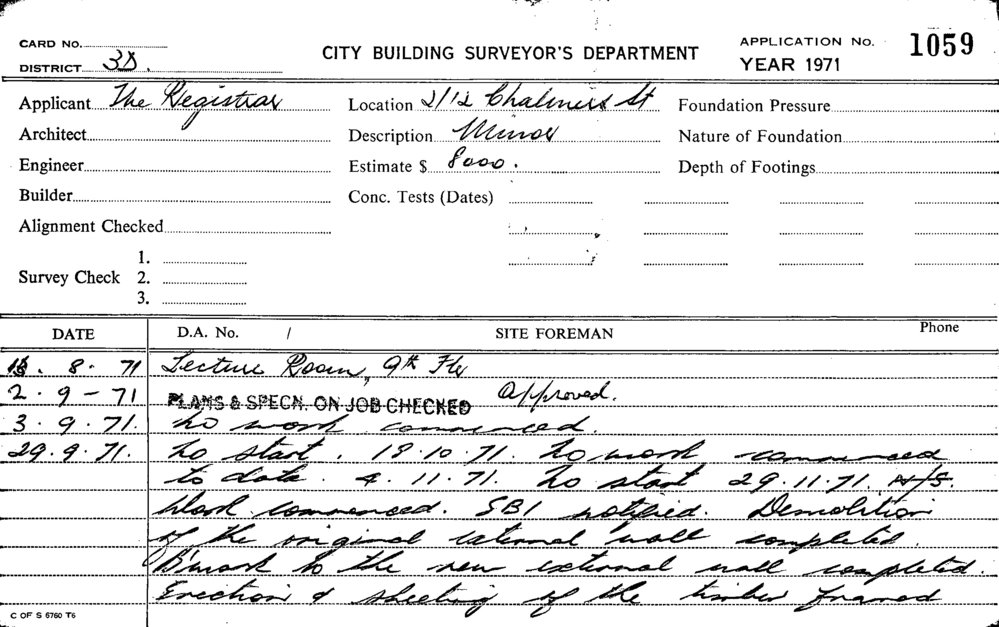 CARD No.
DISTRICT 3D.
CITY BUILDING SURVEYOR'S DEPARTMENT
APPLICATION No. 1059
YEAR 1971
Applicant The Registrar
Location 2/12 Chalmers St
Foundation Pressure
Architect
Description Minor
Nature of Foundation
Engineer
Estimate $ 8000.
Depth of Footings
Builder
Conc. Tests (Dates)
Alignment Checked
Survey Check
1.
2.
3.
DATE
D.A. No. /
SITE FOREMAN
Phone
8. 71 Lecture Room, 9th Flr
2. 9 - 71 PLANS & SPECN. ON JOB CHECKED Approved.
3. 9. 71. No work commenced.
29. 9. 71. No start. 18.10.71. No work commenced
to date. 4.11.71. No start 29.11.71. N/S.
Work commenced. SBI notified. Demolition
of the original external wall completed.
B'work to the new external wall completed.
Erection & sheeting of the timber framed
C OF S 6760 T6